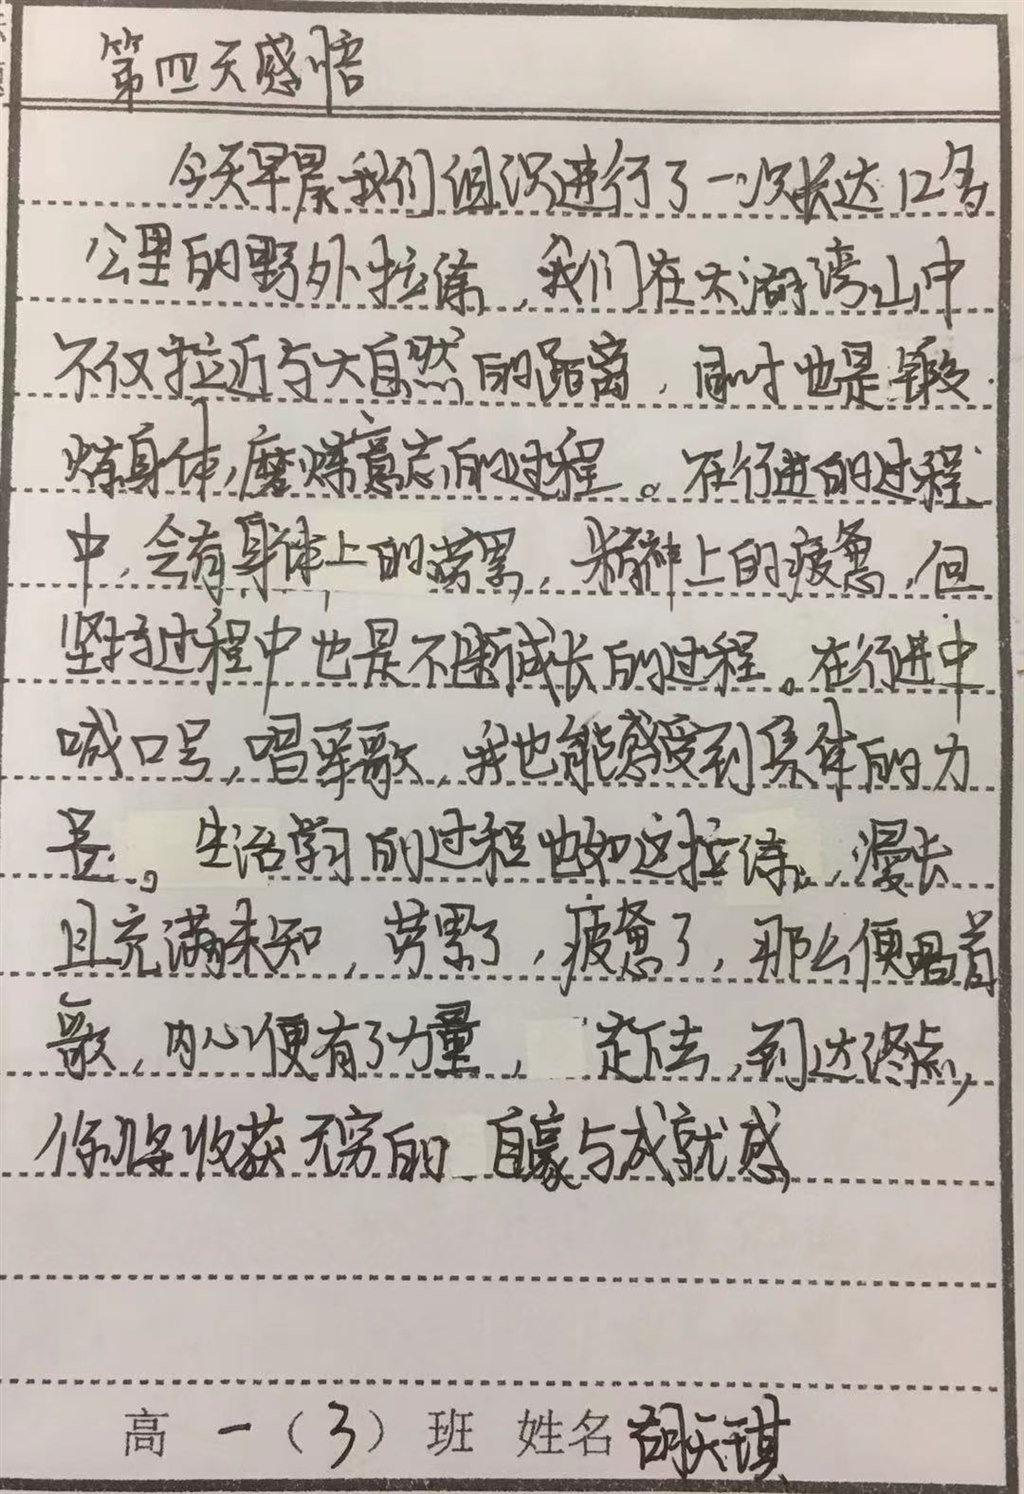 第四天感悟
今天早晨我们组织进行了一次长达12多
公里的野外拉练，我们在太湖湾山中
不仅拉近与大自然的距离，同时也是锻
炼身体，磨炼意志的过程。在行进的过程
中，会有身体上的劳累，精神上的疲惫，但
坚持过程中也是不断成长的过程。在行进中
喊口号，唱军歌，我也能感受到集体的力
量。生活学习的过程也如这拉练，漫长
且充满未知，劳累了，疲惫了，那么便唱首
歌，内心便有了力量，走下去，到达终点，
你将收获无穷的自豪与成就感
高一（3）班 姓名 胡天琪